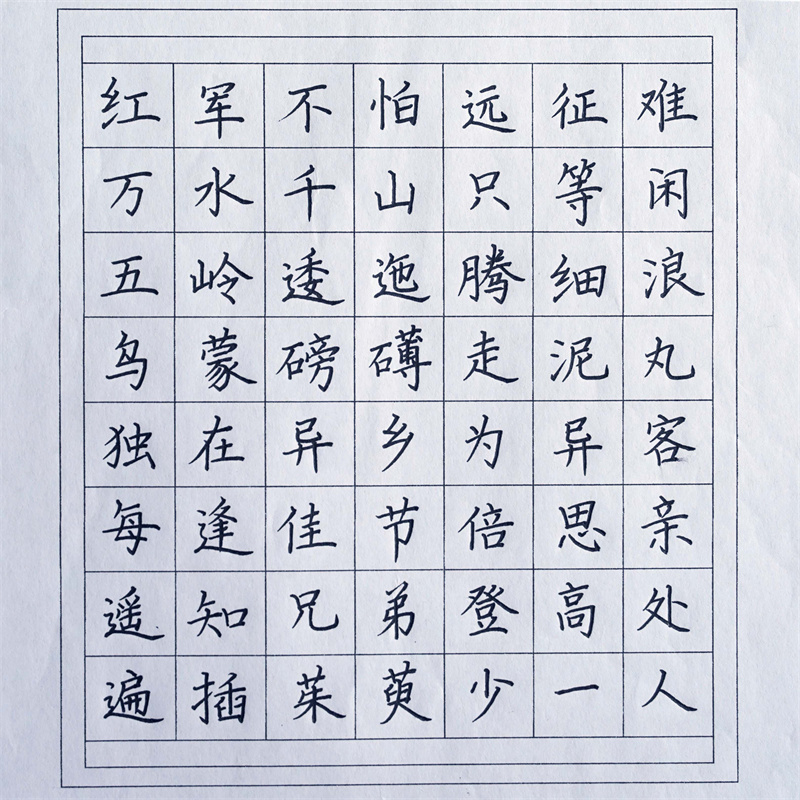 红军不怕远征难
万水千山只等闲
五岭逶迤腾细浪
乌蒙磅礴走泥丸
独在异乡为异客
每逢佳节倍思亲
遥知兄弟登高处
遍插茱萸少一人